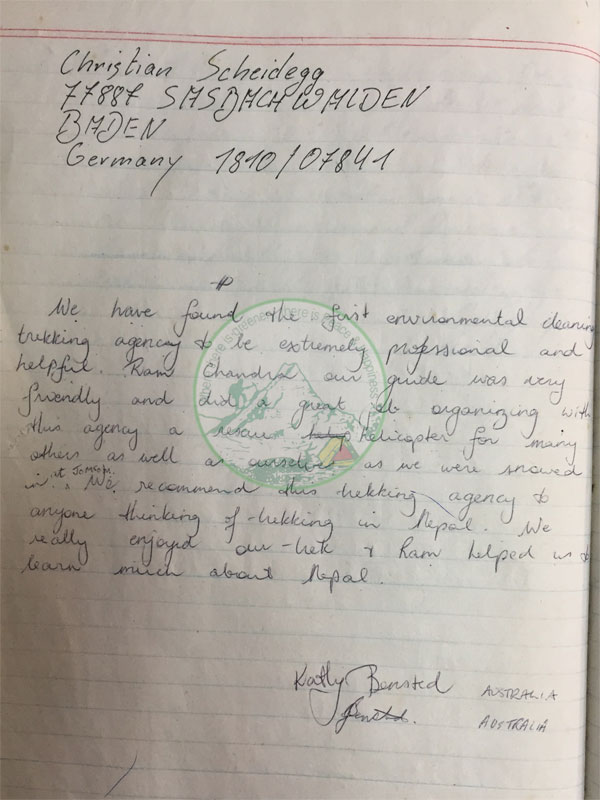 Christian Scheidegg
77887 SASBACHWALDEN
BADEN
Germany 1810/07841
We have found the first environmental cleaning
trekking agency to be extremely professional and
helpful. Ram Chandra our guide was very
friendly and did a great job organizing with
this agency a rescue helicopter for many
others as well as ourselves as we were snowed
in at Jomsom. We recommend this trekking agency to
anyone thinking of trekking in Nepal. We
really enjoyed our trek & Ram helped us to
learn much about Nepal.
Kathy Bensted AUSTRALIA
AUSTRALIA